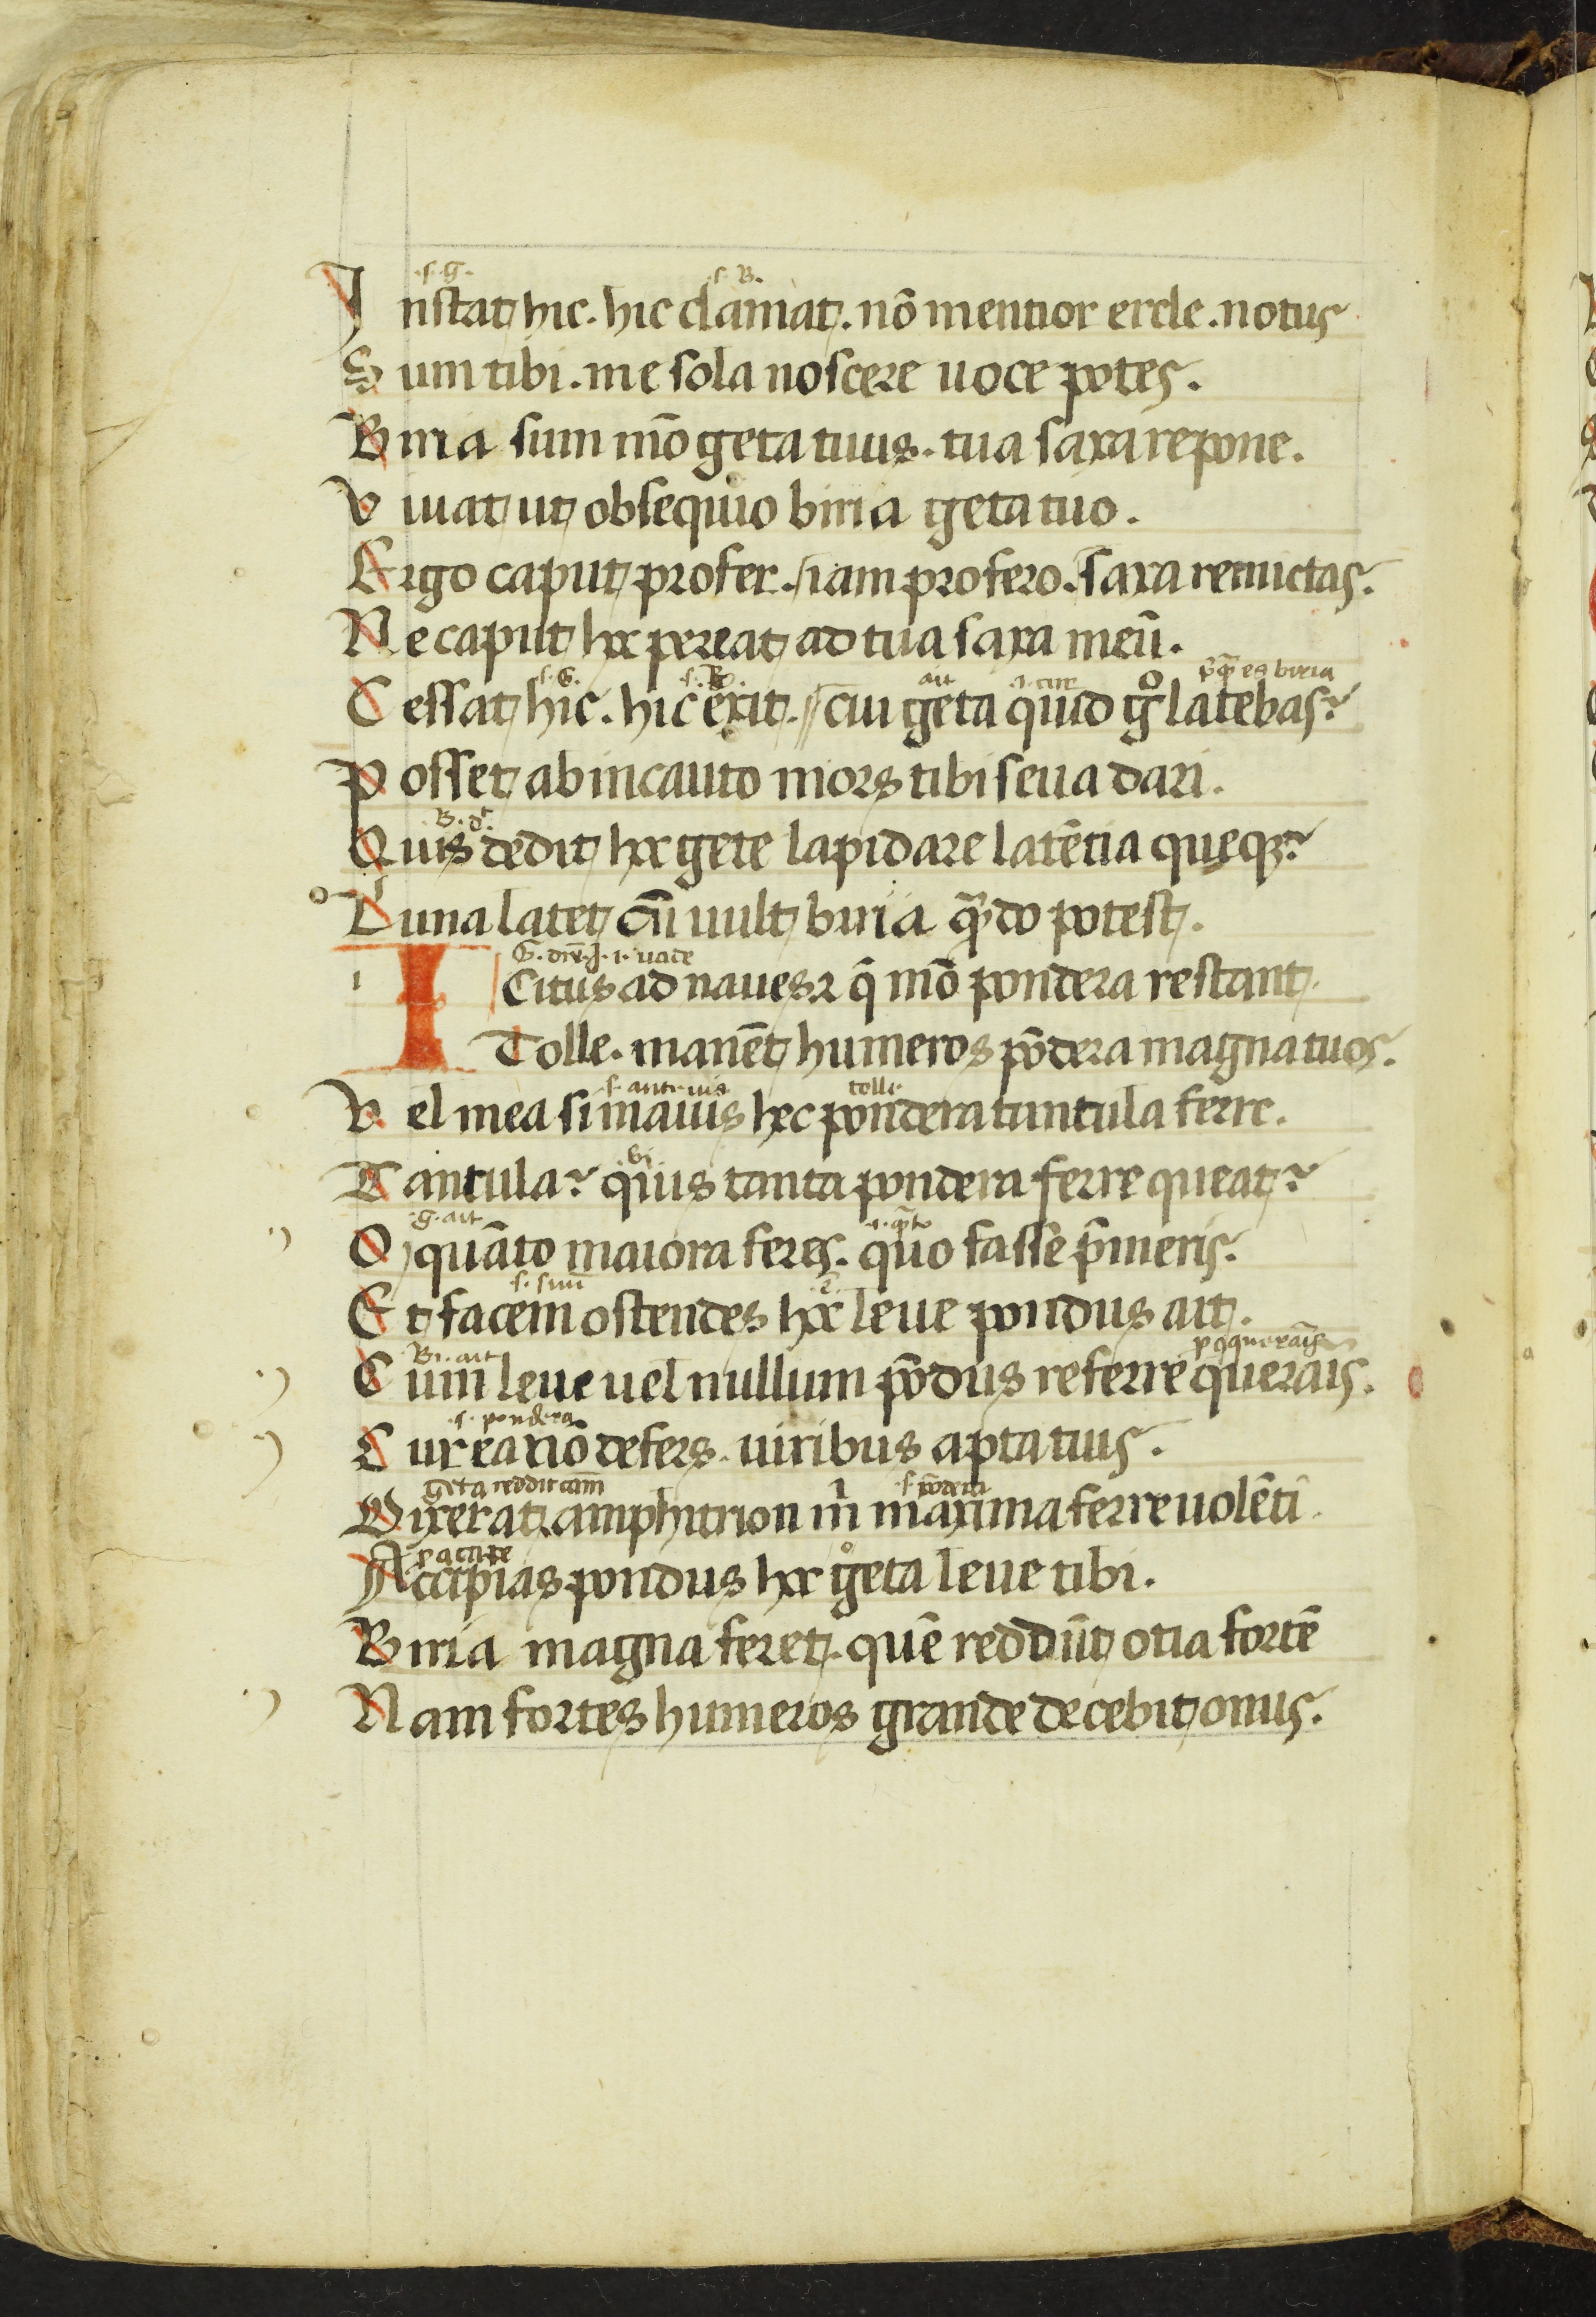 .s.G. .s.B.
Instat hic. hic clamat. nō mentior ercle. notus
Sum tibi. me sola noscere uoce potes.
Birria sum mō geta tuus. tua saxa repone.
Viuat ut obsequio birria geta tuo.
Ergo caput profer. iam profero. saxa remictas.
Ne caput hoc pereat ad tua saxa meū.
.s.G. .s.B. ait .i. cur
Cessat hic. hic exit. cui geta quid gͦ latebas?
Posset ab incauto mors tibi seua dari.
B. dt
Quis dedit hoc gete lapidare latētia queqз?
Luna latet cū uult birria qn̄do potest.
G. i. uade
I Citus ad naues ꝛ q̄ mō pondera restant.
Tolle. manēt humeros pōdera magna tuos.
tolle.
Vel mea si mauis hec pondera tantula ferre.
bi
Tantula? quis tanta pondera ferre queat?
.g. ait .i. q̄to
O quāto maiora feres. quo fasse p̄meris.
Et facem ostendes hoc leue pondus ait.
Bi. ait
Cum leue uel nullum pōdus referre queraris.
.s. pondera
Cur ea nō defers. uiribus apta tuis.
geta reddit cām .s. pōdera
Dixerat amphitrion m̍ maxima ferre uolēti.
Accipias pondus hoc gͦ geta leue tibi.
Birria magna feret. quē reddūt otia fortē
Nam fortes humeros grande decebit onus.